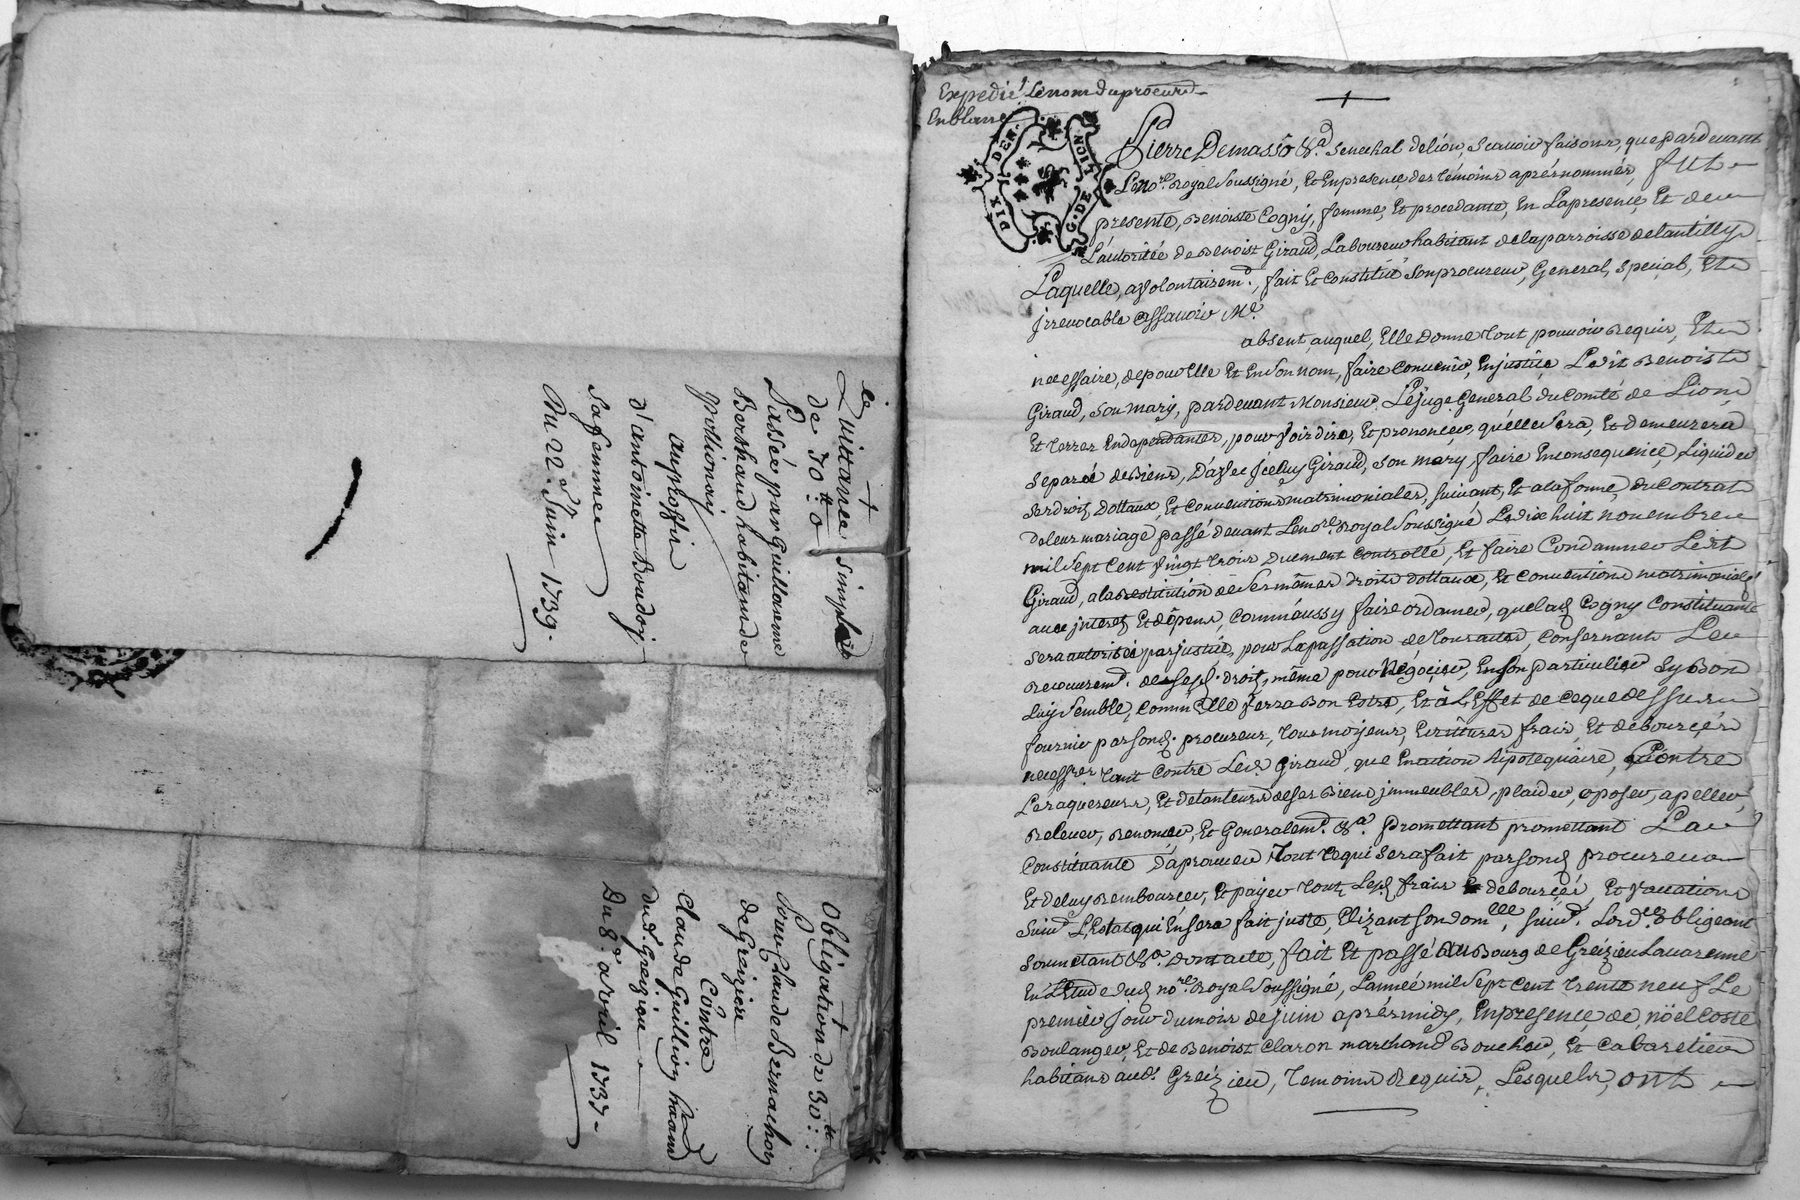 ce
+
Quittance simple
de 70ᵗᵗ 0
Passée par Guillaume
Berthaud habitant de
pollionay
au proffit
d'antoinette Boudoy
sa femme
Du 22.ᵉ Juin 1739.
+
obligation de 30ᵗᵗ
Pour Claude Bernachon
de Greizieu
Contre
Claude Guillion
dud. Greizieu
Du 8.ᵉ avril 1737
Expedié le nom du procureur
En blanc
DIX DEN.
G. DE LION
Pierre Demasso &ᵃ. senechal de lion, Scavoir faisons, que pardevant
Le noʳᵉ Royal Soussigné, Et En presence des témoins aprés nommés, fut
presente, Benoiste Cogny, femme, Et procedante, En La presence, Et de
L'autoritée de Benoist Giraud, Laboureur habitant de la parroisse de lantilly
Laquelle, a volontairemᵗ, fait Et constitué Son procureur, General, Special, Et
Irrevocable assavoir Mᵉ.
absent, auquel, Elle Donne tout pouvoir Requis, Et
necessaire, de pour Elle Et En Son nom, faire Convenir, En justice Ledit Benoist
Giraud, Son mary, pardevant Monsieur Le juge General du Comté de Lion,
Et terres Endependantes, pour Voir dire, Et prononcer, qu'elle Sera, Et demeurera
Separée de Biens, D'avec Iceluy Giraud, Son mary, faire En consequence, Liquider
Ses droits Dottaux, Et Conventions matrimoniales, Suivant, Et a la forme, du Contrat
de leur mariage passé devant Le noʳᵉ Royal Soussigné Le dix huit novembre
mil Sept Cent Vingt trois Duement Controllé, Et faire Condamner Ledit
Giraud, a la Restitution de Ses mêmes droits dottaux, Et Conventions matrimoniales
avec jnterets Et dépens, Comm'aussy faire ordonner, que lad. Cogny Constituante
Sera autorisée par justice, pour La passation de tous actes, Consernant Le
Recouvremᵗ. de Sesd. droits, même pour Négocier, En Son particulier Sy Bon
Luy Semble, Comm'Elle Verra Bon Estre, Et à L'Effet de ce que dessus
fournir par Sond. procureur, tous moyens, Ecrittures frais, Et débourcés
necessres tant Contre Led. Giraud, que En action hipotequaire, Contre
Les aquereurs, Et detanteurs de Ses Biens jmmeubles, plaider, oposer, apeller,
Relever, Renoncer, Et Generalemᵗ. &ᵃ. Promettant promettant La
Constituante D'aprouver tout Ce qui Sera fait par Sond. procureur
Et de luy Rembourcer, Et payer touts Lesd. frais Et debourcés Et Vacations
Suivᵗ L'Estat qui En Sera fait juste, Elizant Son domˡˡᵉ, Suivᵗ. Lordᶜᵉ obligeant
Soumetant &ᵃ. Dont acte, fait Et passé au Bourg de Greizieu Lavarenne
En L'Etude dud. noʳᵉ. Royal Soussigné, L'année mil Sept Cent trente neuf Le
premier Jour du mois de juin aprés midy, En presence de, nöel Coste
Boulanger, Et de Benoist Claron marchand Boucher, Et Cabaretier
habitans aud. Greizieu, temoins Requis, Lesquels, ont